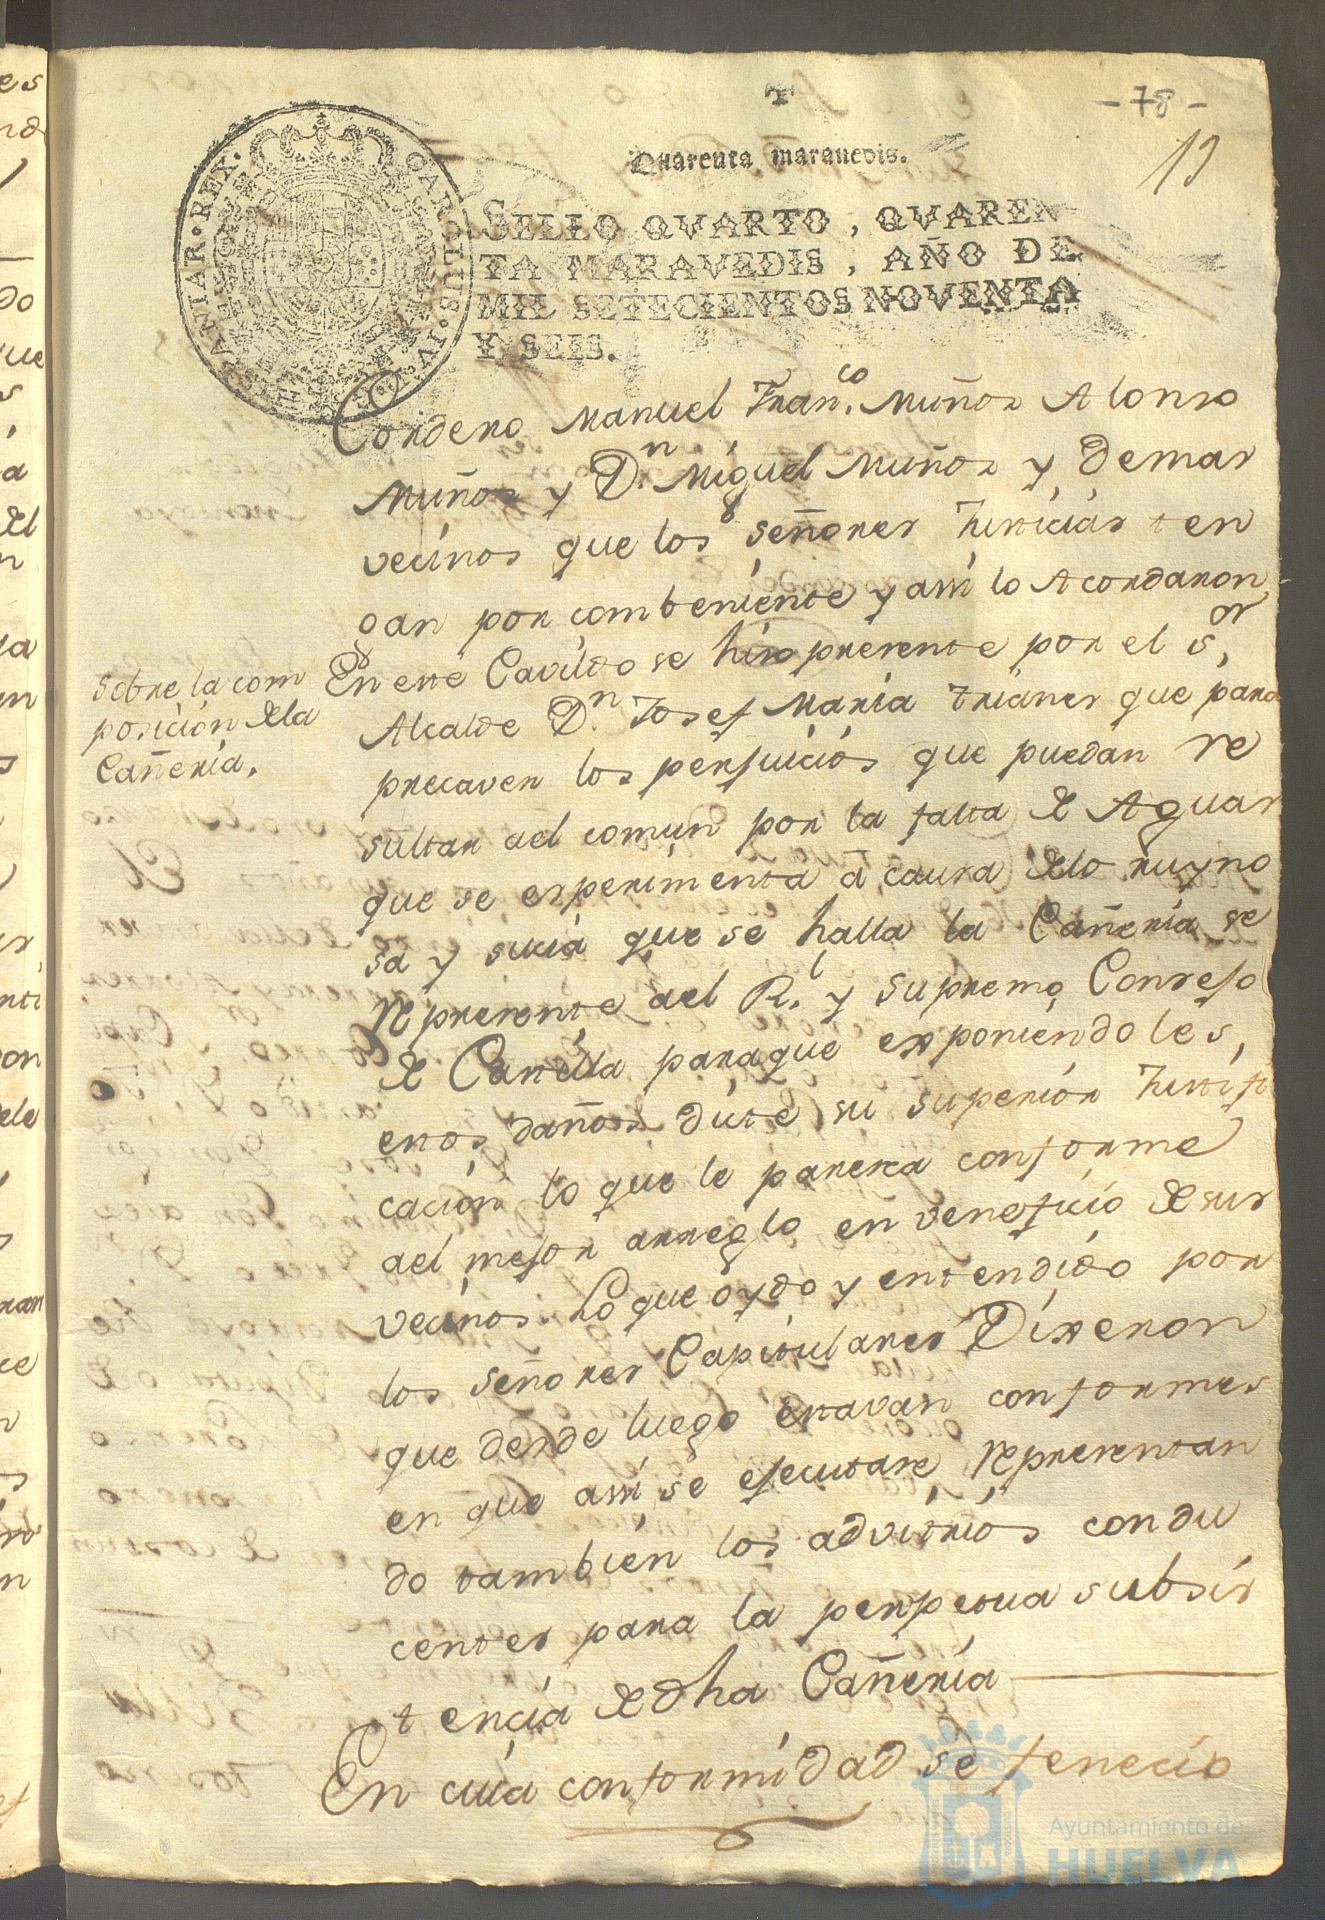 - 78 -
19
Quarenta maravedis.
SELLO QVARTO, QVAREN
TA MARAVEDIS, AÑO DE
MIL SETECIENTOS NOVENTA
Y SEIS.
CAROLUS IV D G HISPANIAR REX
Cordero Manuel Franco. Muñoz Alonso
Muñoz y Dn. Miguel Muñoz y demas
vecinos que los señores Justicias ten
gan por combeniente y assi lo Acordaron
Sobre la com
posicion de la
Cañeria.
En este Cavildo se hizo presente por el Sor,
Alcalde Dn Josef Maria Trianes que para
precaver los perjuicios que puedan re
sultar ael comun por la falta de Aguas
que se experimenta a causa de lo ruyno
sa y sucia que se halla la Cañeria se
represente ael Rl. y Supremo Consejo
de Castilla paraque exponiendoles,
estos daños dicte su superior Justifi
cacion lo que le paresca conforme
ael mejor arreglo en veneficio de sus
vecinos. Lo que oydo y entendido por
los señores Capitulares Dixeron
que desde luego estavan conformes
en que assi se ejecutare, representan
do tambien los advitrios condu
centes para la perpetua subsis
tencia de dha Cañeria
En cuia conformidad se fenecio
Ayuntamiento de
HUELVA